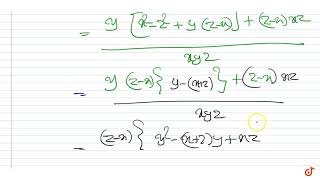 = y [x²-z² + y (z-x)] + (z-x) xz
xyz
= y (z-x) { y-(x+z) } + (z-x) xz
xyz
= (z-x) { y² - (x+z) y + xz